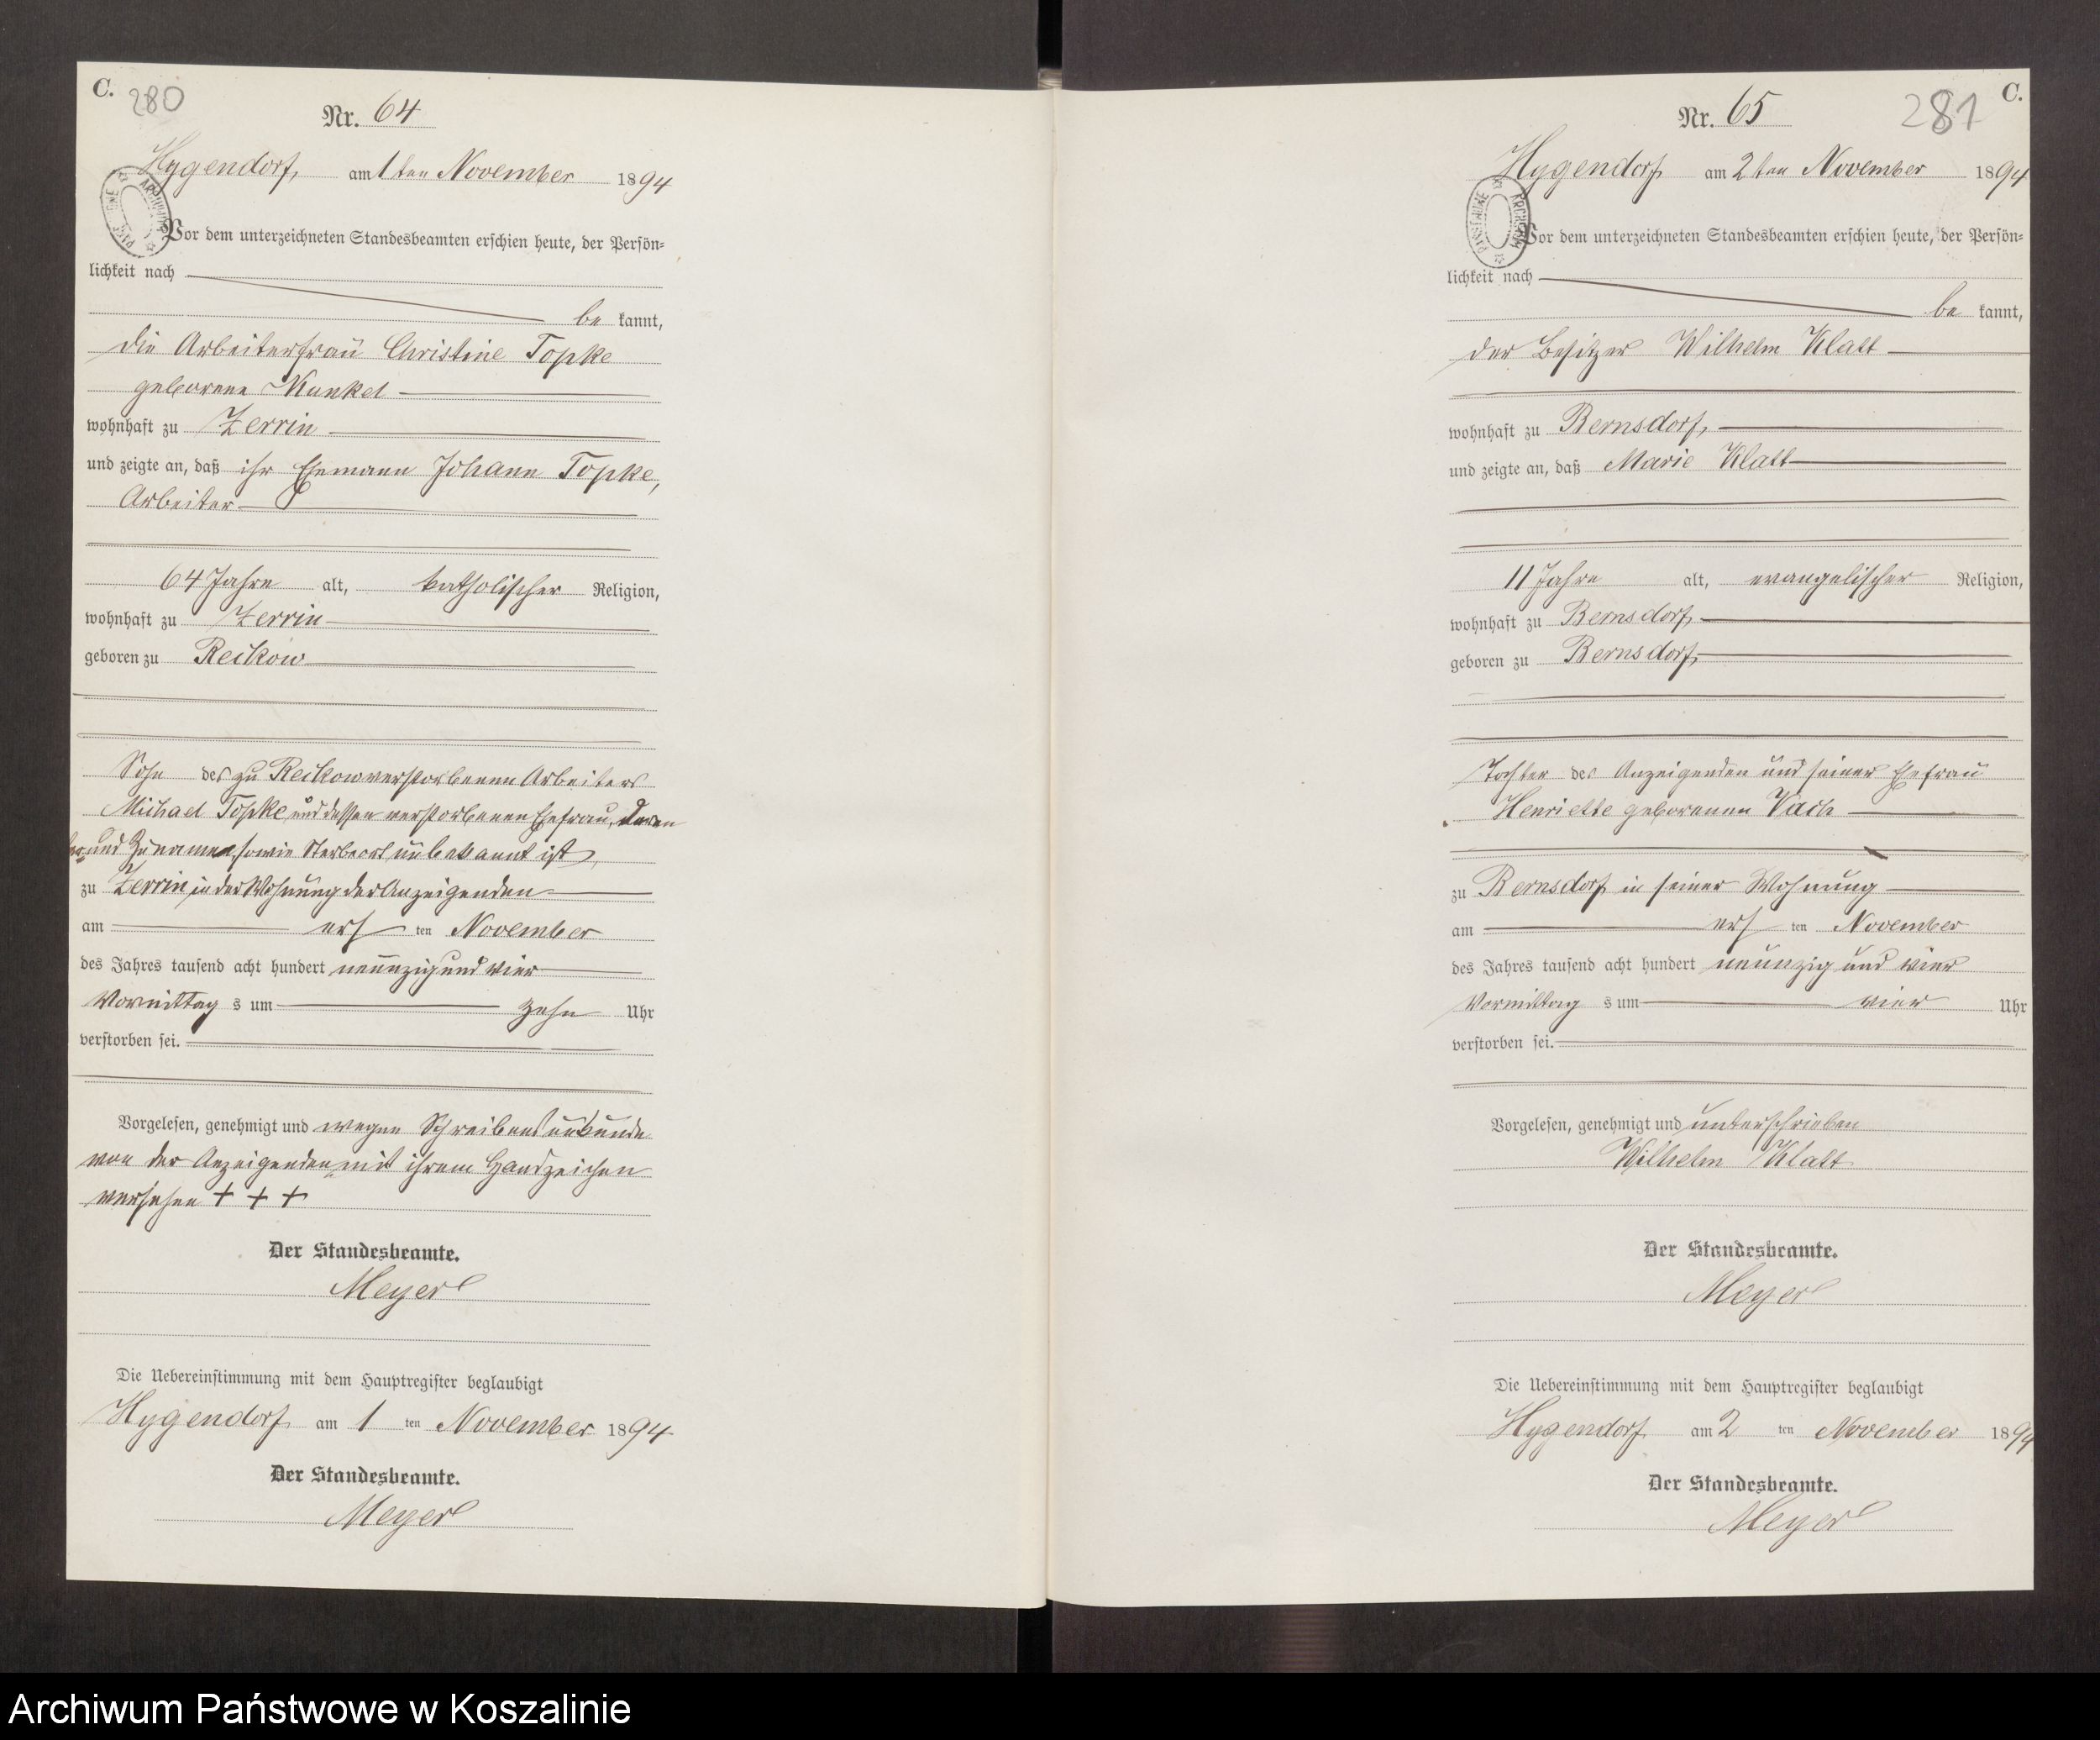 C. 280
Nr. 64
Hygendorf, am 1ten November 1894
Vor dem unterzeichneten Standesbeamten erschien heute, der Persön=
lichkeit nach
be kannt,
die Arbeiterfrau Christine Topke
geborene Kunkel
wohnhaft zu Zerrin
und zeigte an, daß ihr Ehemann Johann Topke,
Arbeiter
64 Jahre alt, katholischer Religion,
wohnhaft zu Zerrin
geboren zu Reckow
Sohn des zu Reckow verstorbenen Arbeiters
Michael Topke und dessen verstorbenen Ehefrau, deren
und Zunamen, sowie Sterbeort unbekannt ist,
zu Zerrin, in der Wohnung der Anzeigenden
am ersten November
des Jahres tausend acht hundert neunzig und vier
Vormittag s um zehn Uhr
verstorben sei.
Vorgelesen, genehmigt und wegen Schreibensunkunde
von der Anzeigenden mit ihrem Handzeichen
versehen + + +
Der Standesbeamte.
Meyer
Die Uebereinstimmung mit dem Hauptregister beglaubigt
Hygendorf am 1 ten November 1894
Der Standesbeamte.
Meyer
281 C.
Nr. 65
Hygendorf am 2ten November 1894
Vor dem unterzeichneten Standesbeamten erschien heute, der Persön=
lichkeit nach
be kannt,
der Besitzer Wilhelm Klatt
wohnhaft zu Bernsdorf,
und zeigte an, daß Marie Klatt
11 Jahre alt, evangelischer Religion,
wohnhaft zu Bernsdorf
geboren zu Bernsdorf
Tochter des Anzeigenden und seiner Ehefrau
Henriette geborenen Vach
zu Bernsdorf in seiner Wohnung
am ersten November
des Jahres tausend acht hundert neunzig und vier
Vormittag s um vier Uhr
verstorben sei.
Vorgelesen, genehmigt und unterschrieben
Wilhelm Klatt
Der Standesbeamte.
Meyer
Die Uebereinstimmung mit dem Hauptregister beglaubigt
Hygendorf am 2 ten November 1894
Der Standesbeamte.
Meyer
Archiwum Państwowe w Koszalinie